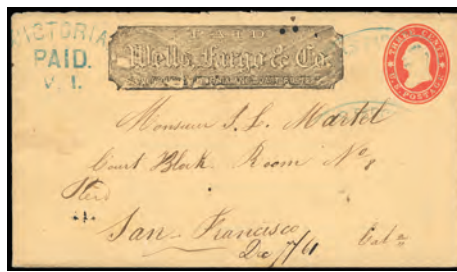 VICTORIA
PAID.
V. I.
PAID
Wells, Fargo & Co.
THREE CENTS
U.S. POSTAGE
Monsieur S. L. Martel
Court Block Room No 8
San Francisco
Cal a